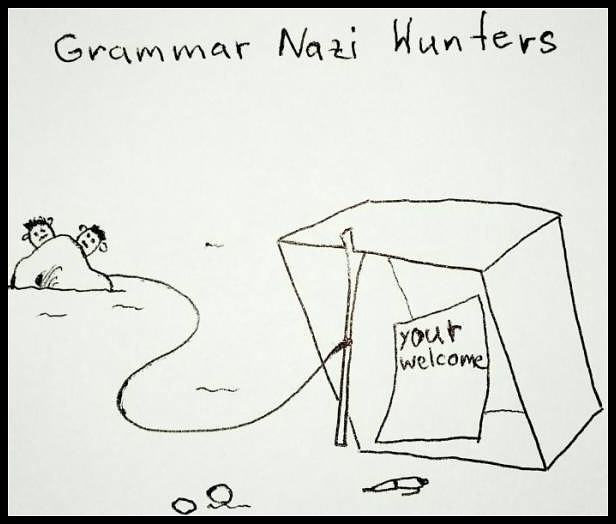 Grammar Nazi Hunters
your
welcome